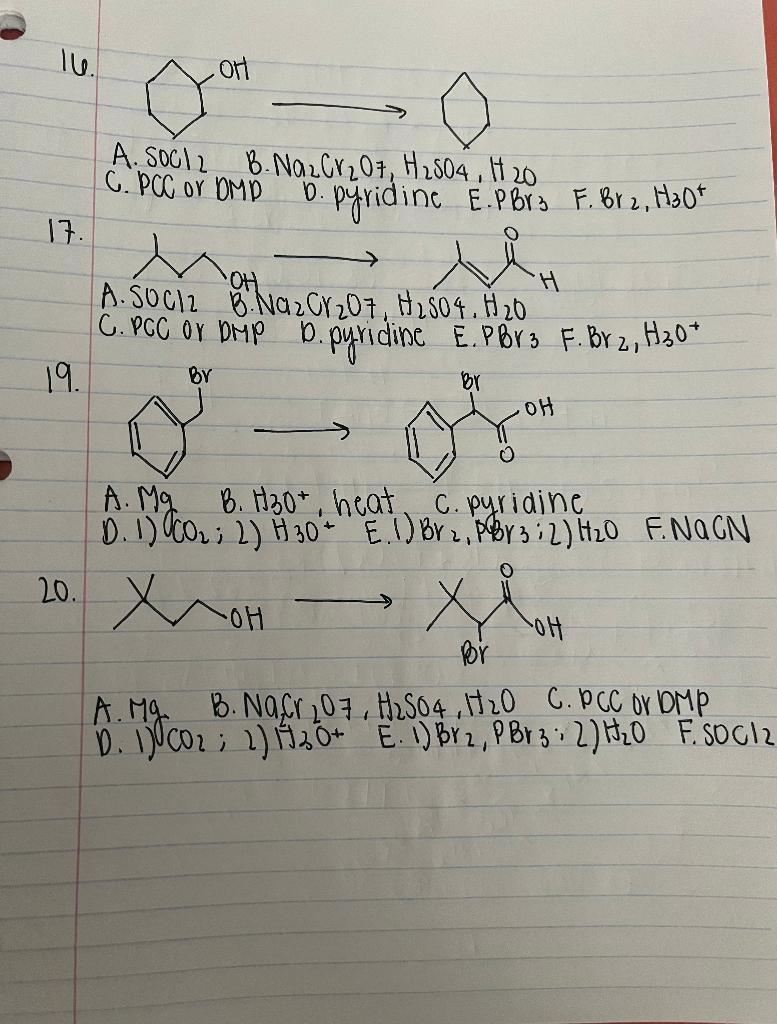 16. OH
A. SOCl2 B. Na2Cr2O7, H2SO4, H2O
C. PCC or DMP D. pyridine E. PBr3 F. Br2, H3O+
17. OH O H
A. SOCl2 B. Na2Cr2O7, H2SO4, H2O
C. PCC or DMP D. pyridine E. PBr3 F. Br2, H3O+
19. Br Br OH O
A. Mg B. H3O+, heat C. pyridine
D. 1) CO2; 2) H3O+ E. 1) Br2, PBr3; 2) H2O F. NaCN
20. OH O OH Br
A. Mg B. Na2Cr2O7, H2SO4, H2O C. PCC or DMP
D. 1) CO2; 2) H3O+ E. 1) Br2, PBr3; 2) H2O F. SOCl2